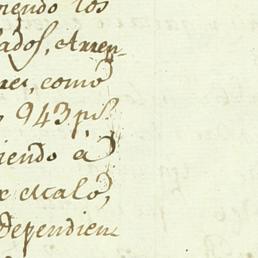 iendo los
ados, Arren-
res, como
943 ps.
iendo à
escaló,
dependien